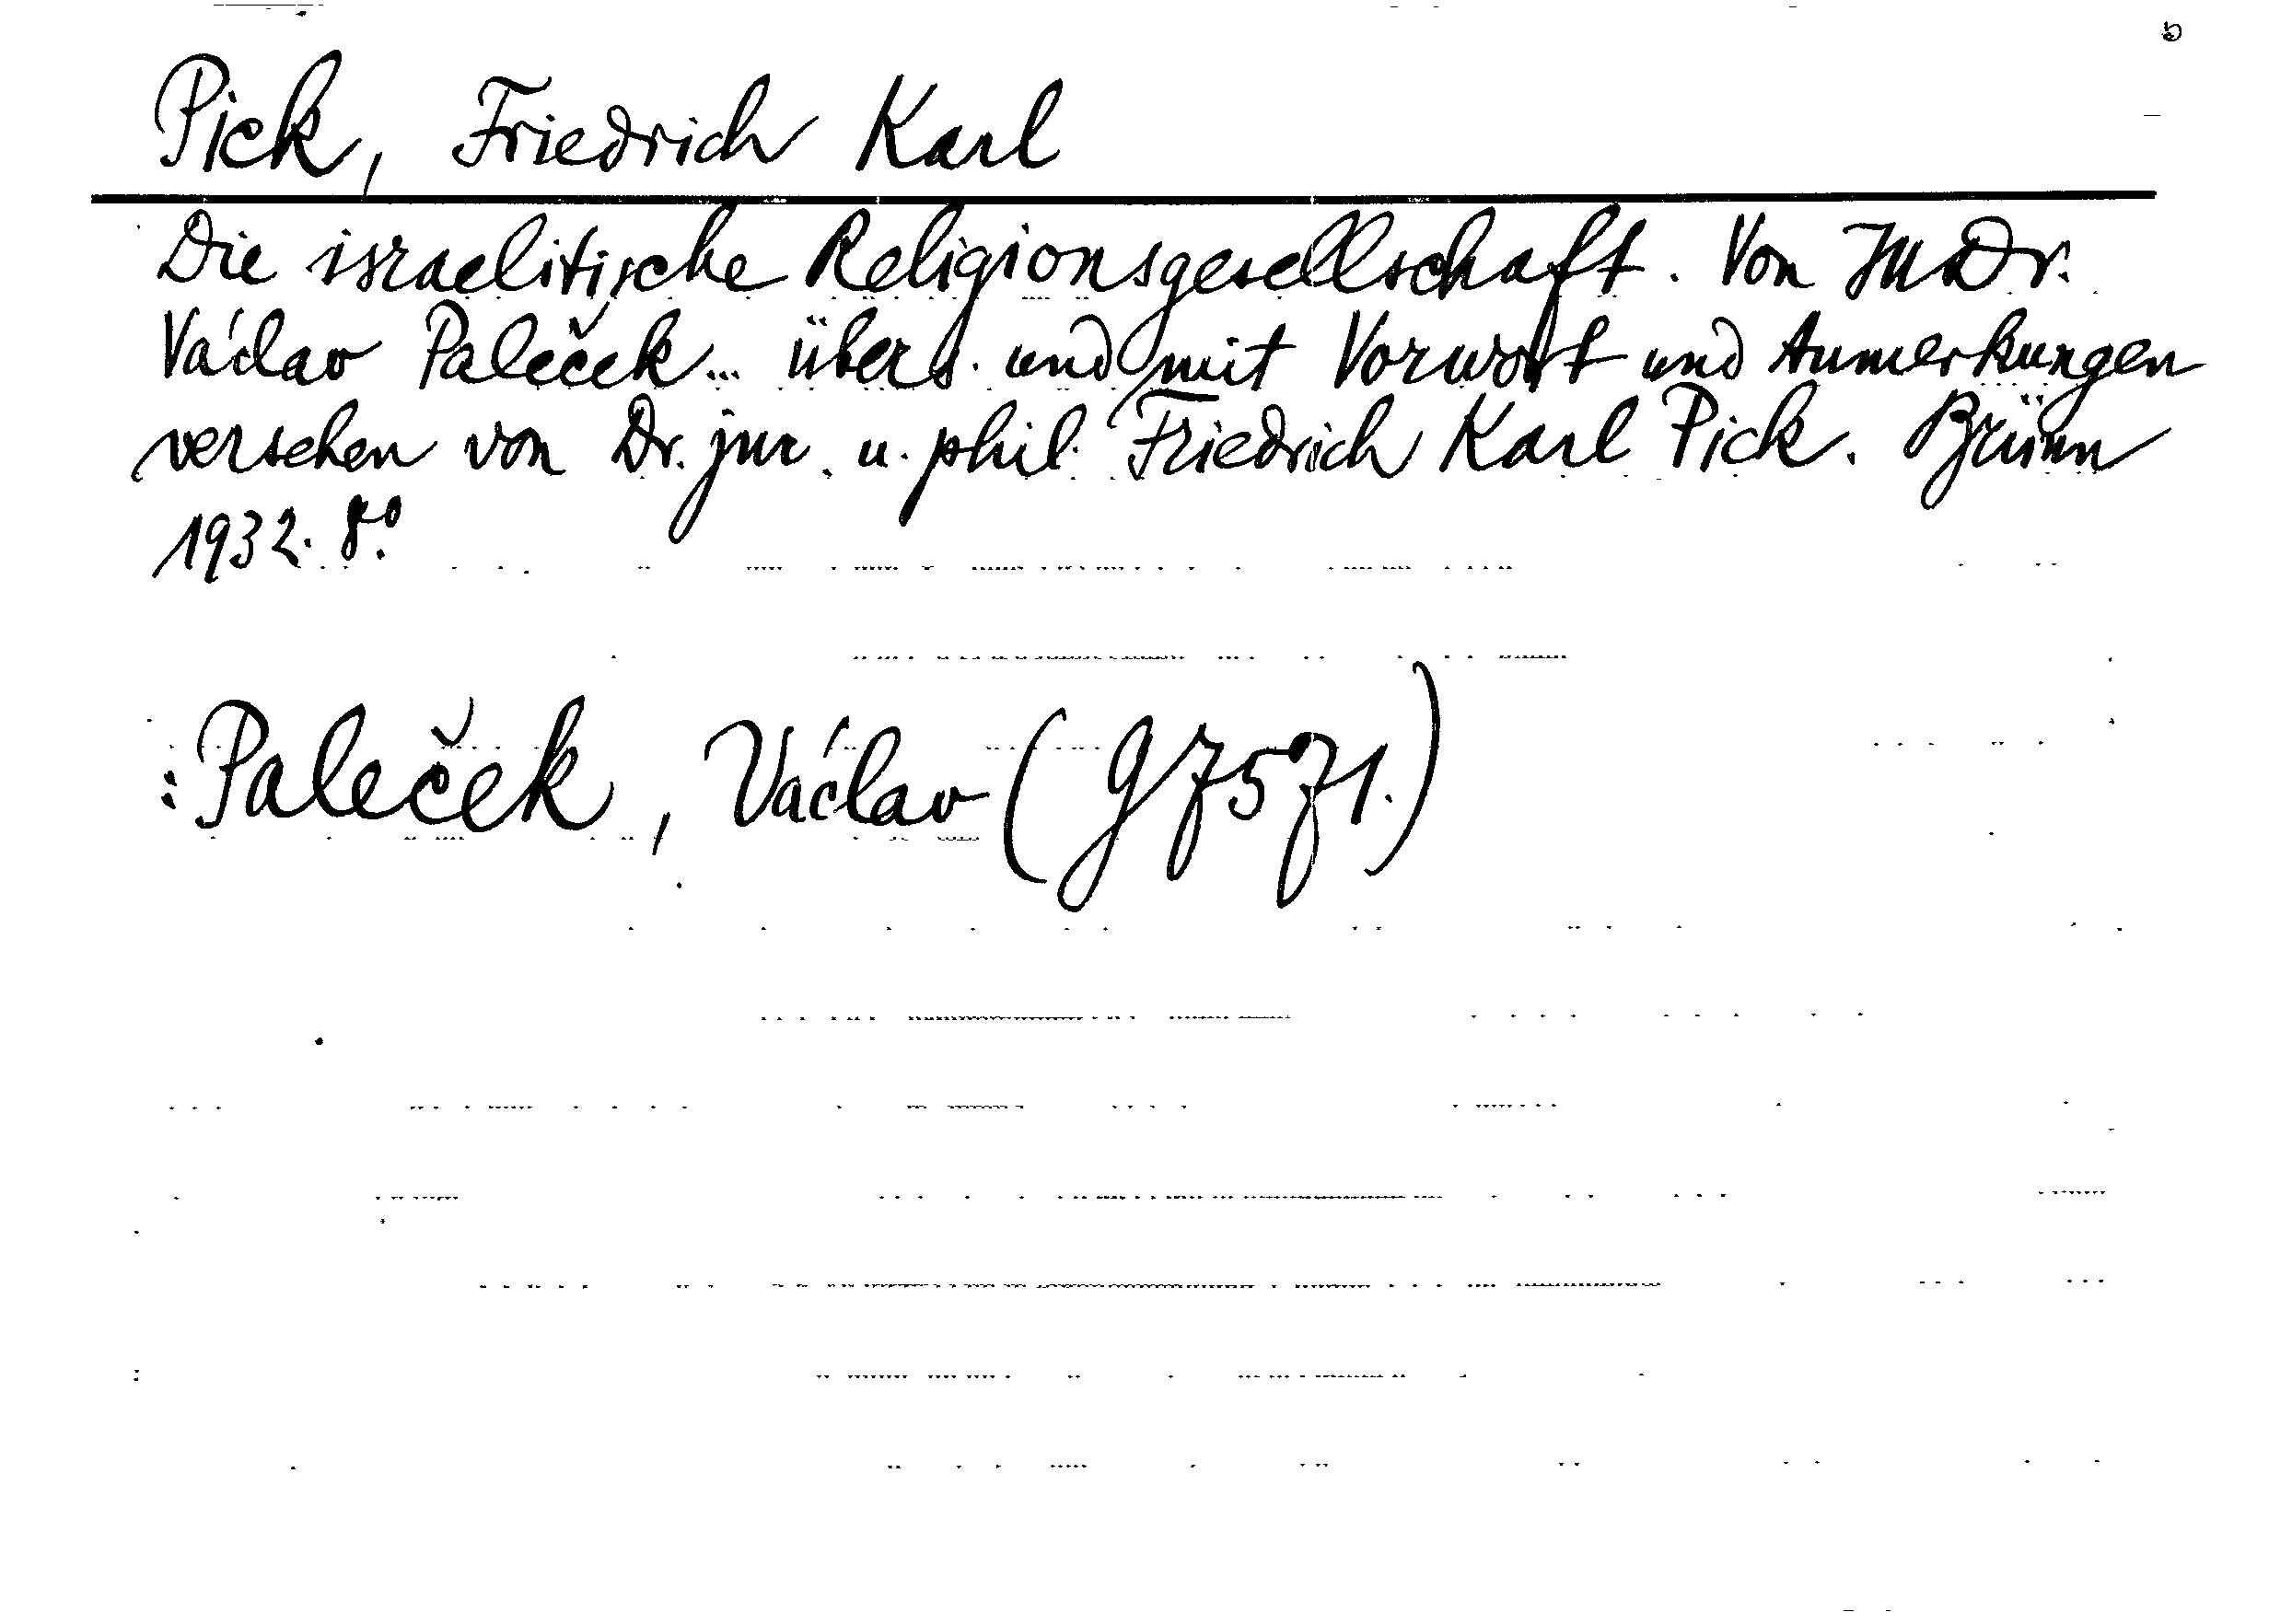 Pick, Friedrich Karl
Die israelitische Religionsgesellschaft. Von JUDr.
Václav Paleček... übers. und mit Vorwort und Anmerkungen
versehen von Dr. jur. u. phil. Friedrich Karl Pick. Brünn
1932. 8º.
: Paleček, Václav (g7571.)